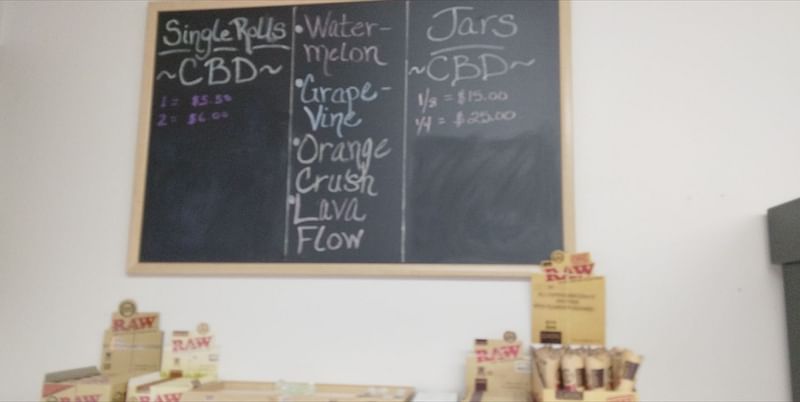 Single Rolls
~CBD~
1 = $5.50
2 = $6.00
•Water-
melon
•Grape-
Vine
•Orange
Crush
•Lava
Flow
Jars
~CBD~
1/8 = $15.00
1/4 = $25.00
RAW
RAW
RAW
RAW
RAW